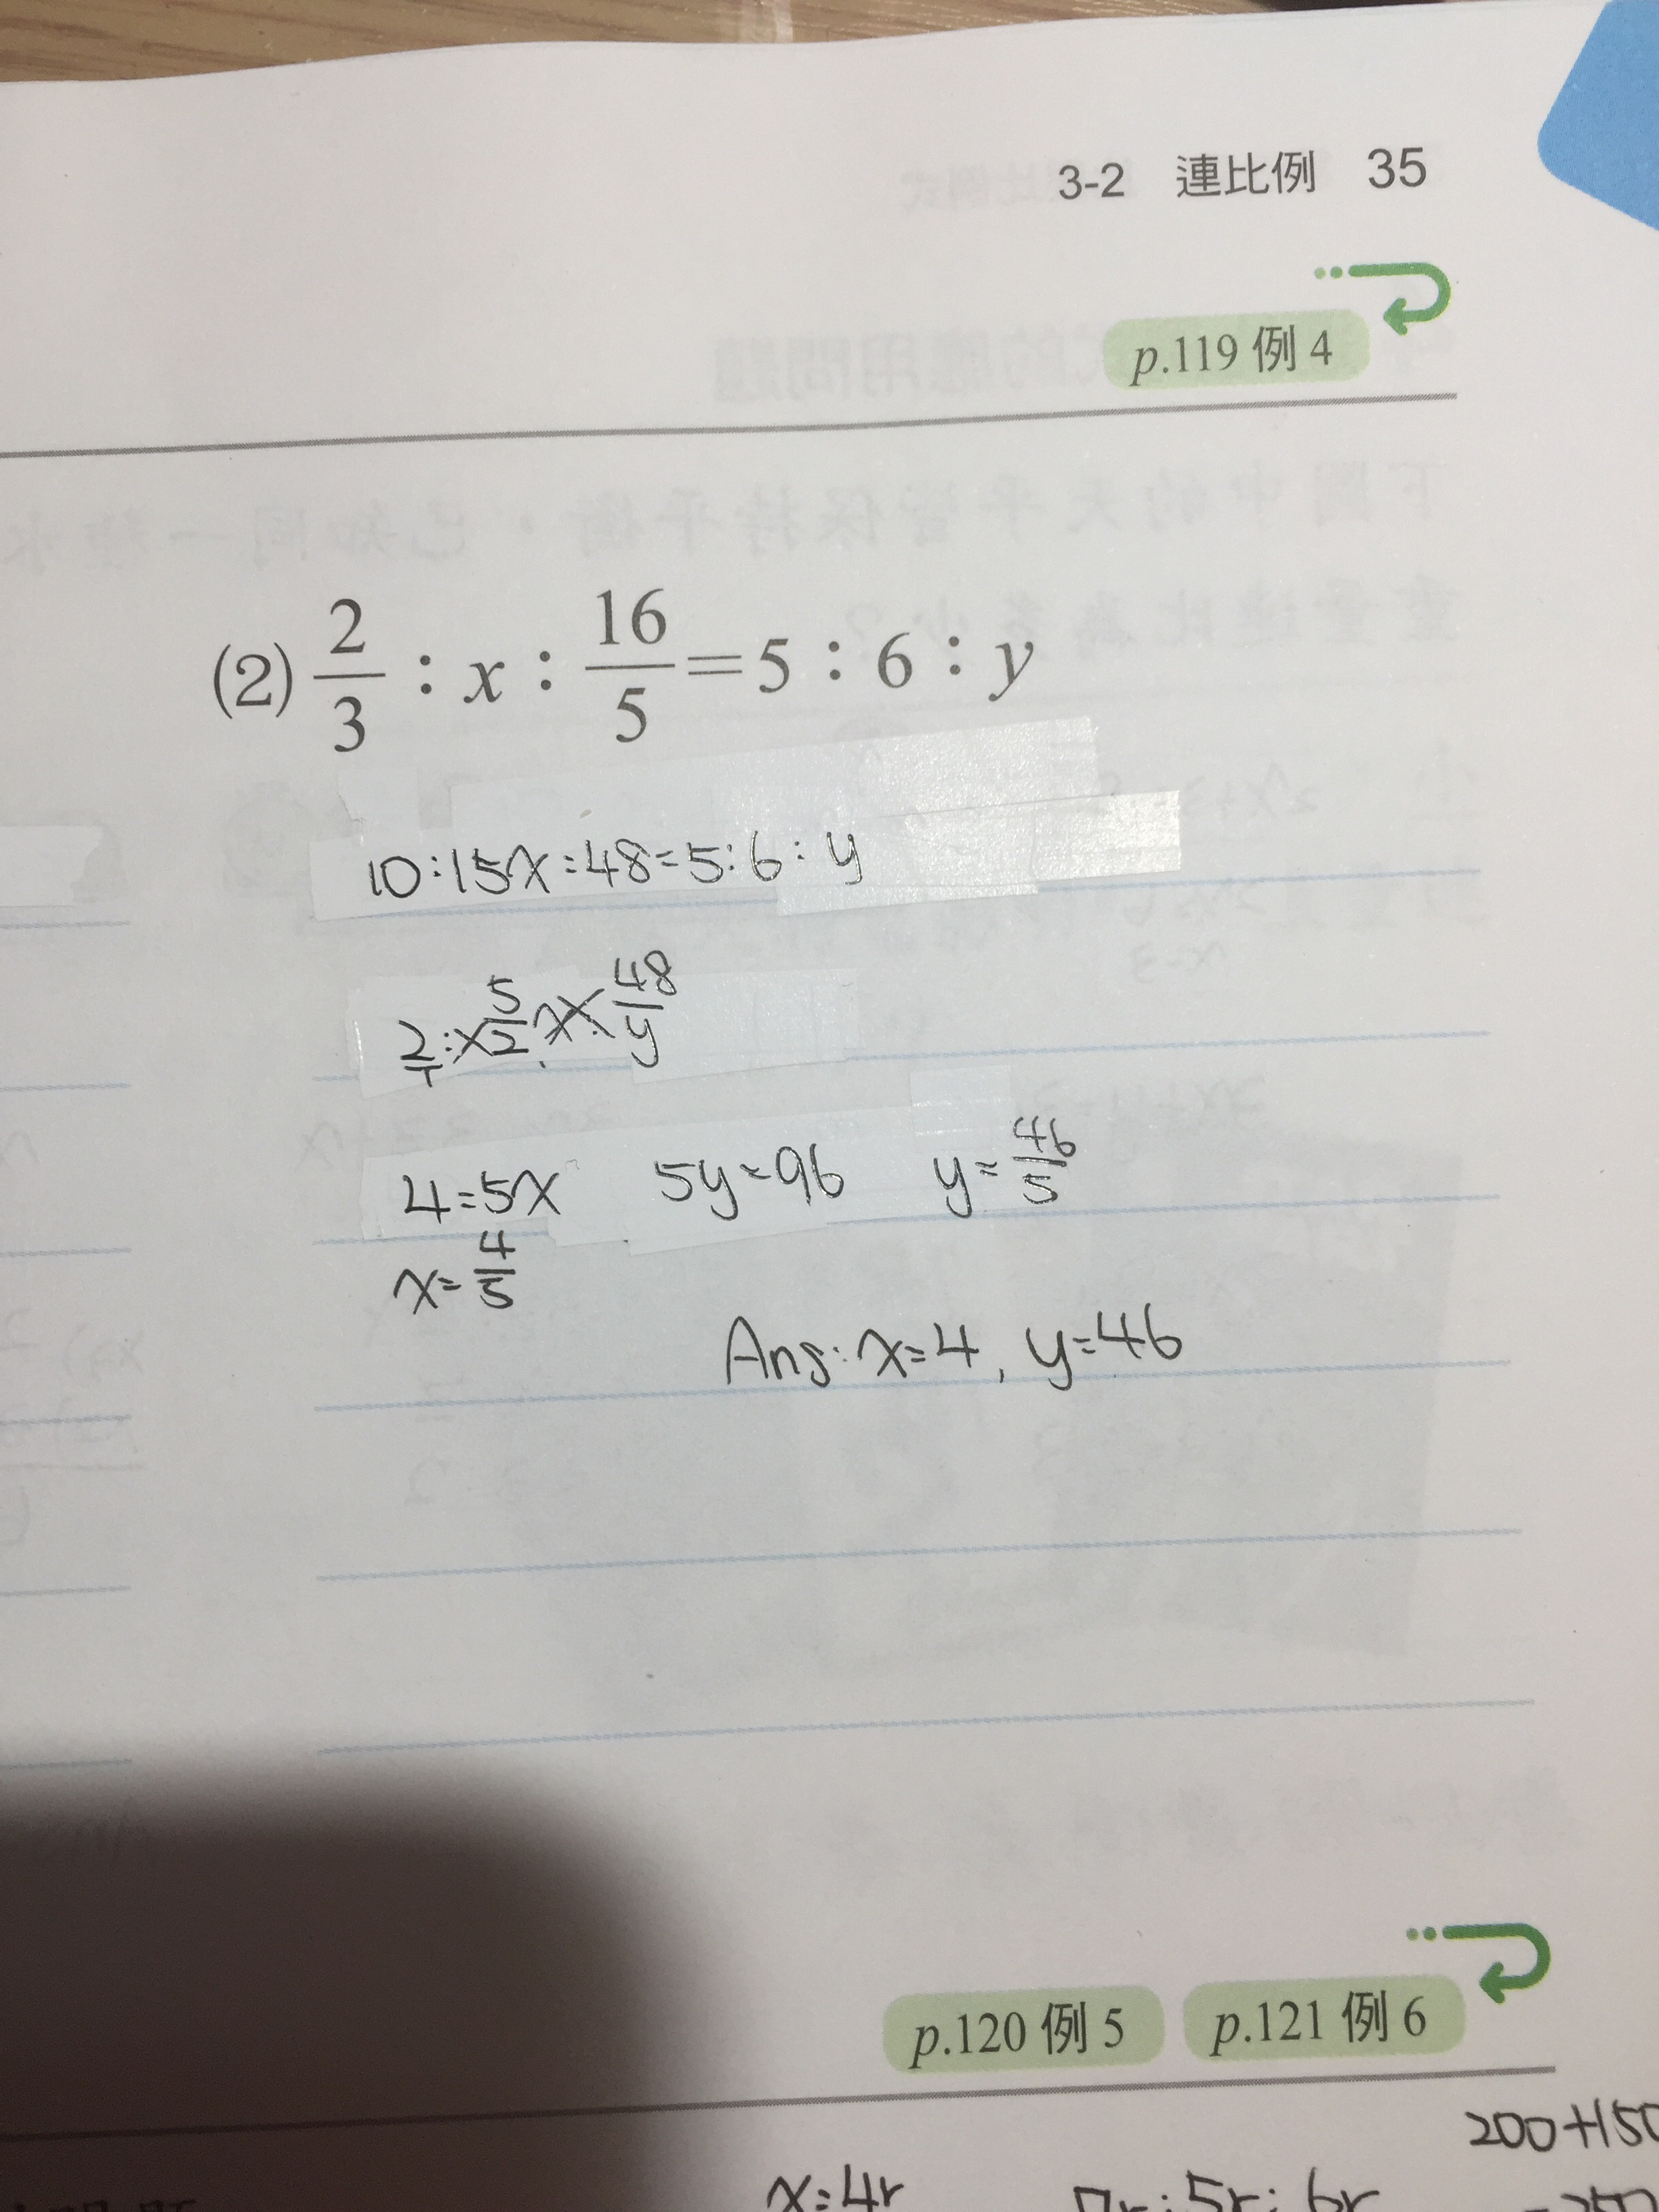 3-2 連比例 35
p.119 例 4
(2) 2/3 : x : 16/5 = 5 : 6 : y
10:15x:48=5:6:y
4=5x 5y=96 y=46/5
x=4/5
Ans:x=4, y=46
p.120 例 5 p.121 例 6
200+150
x=4r